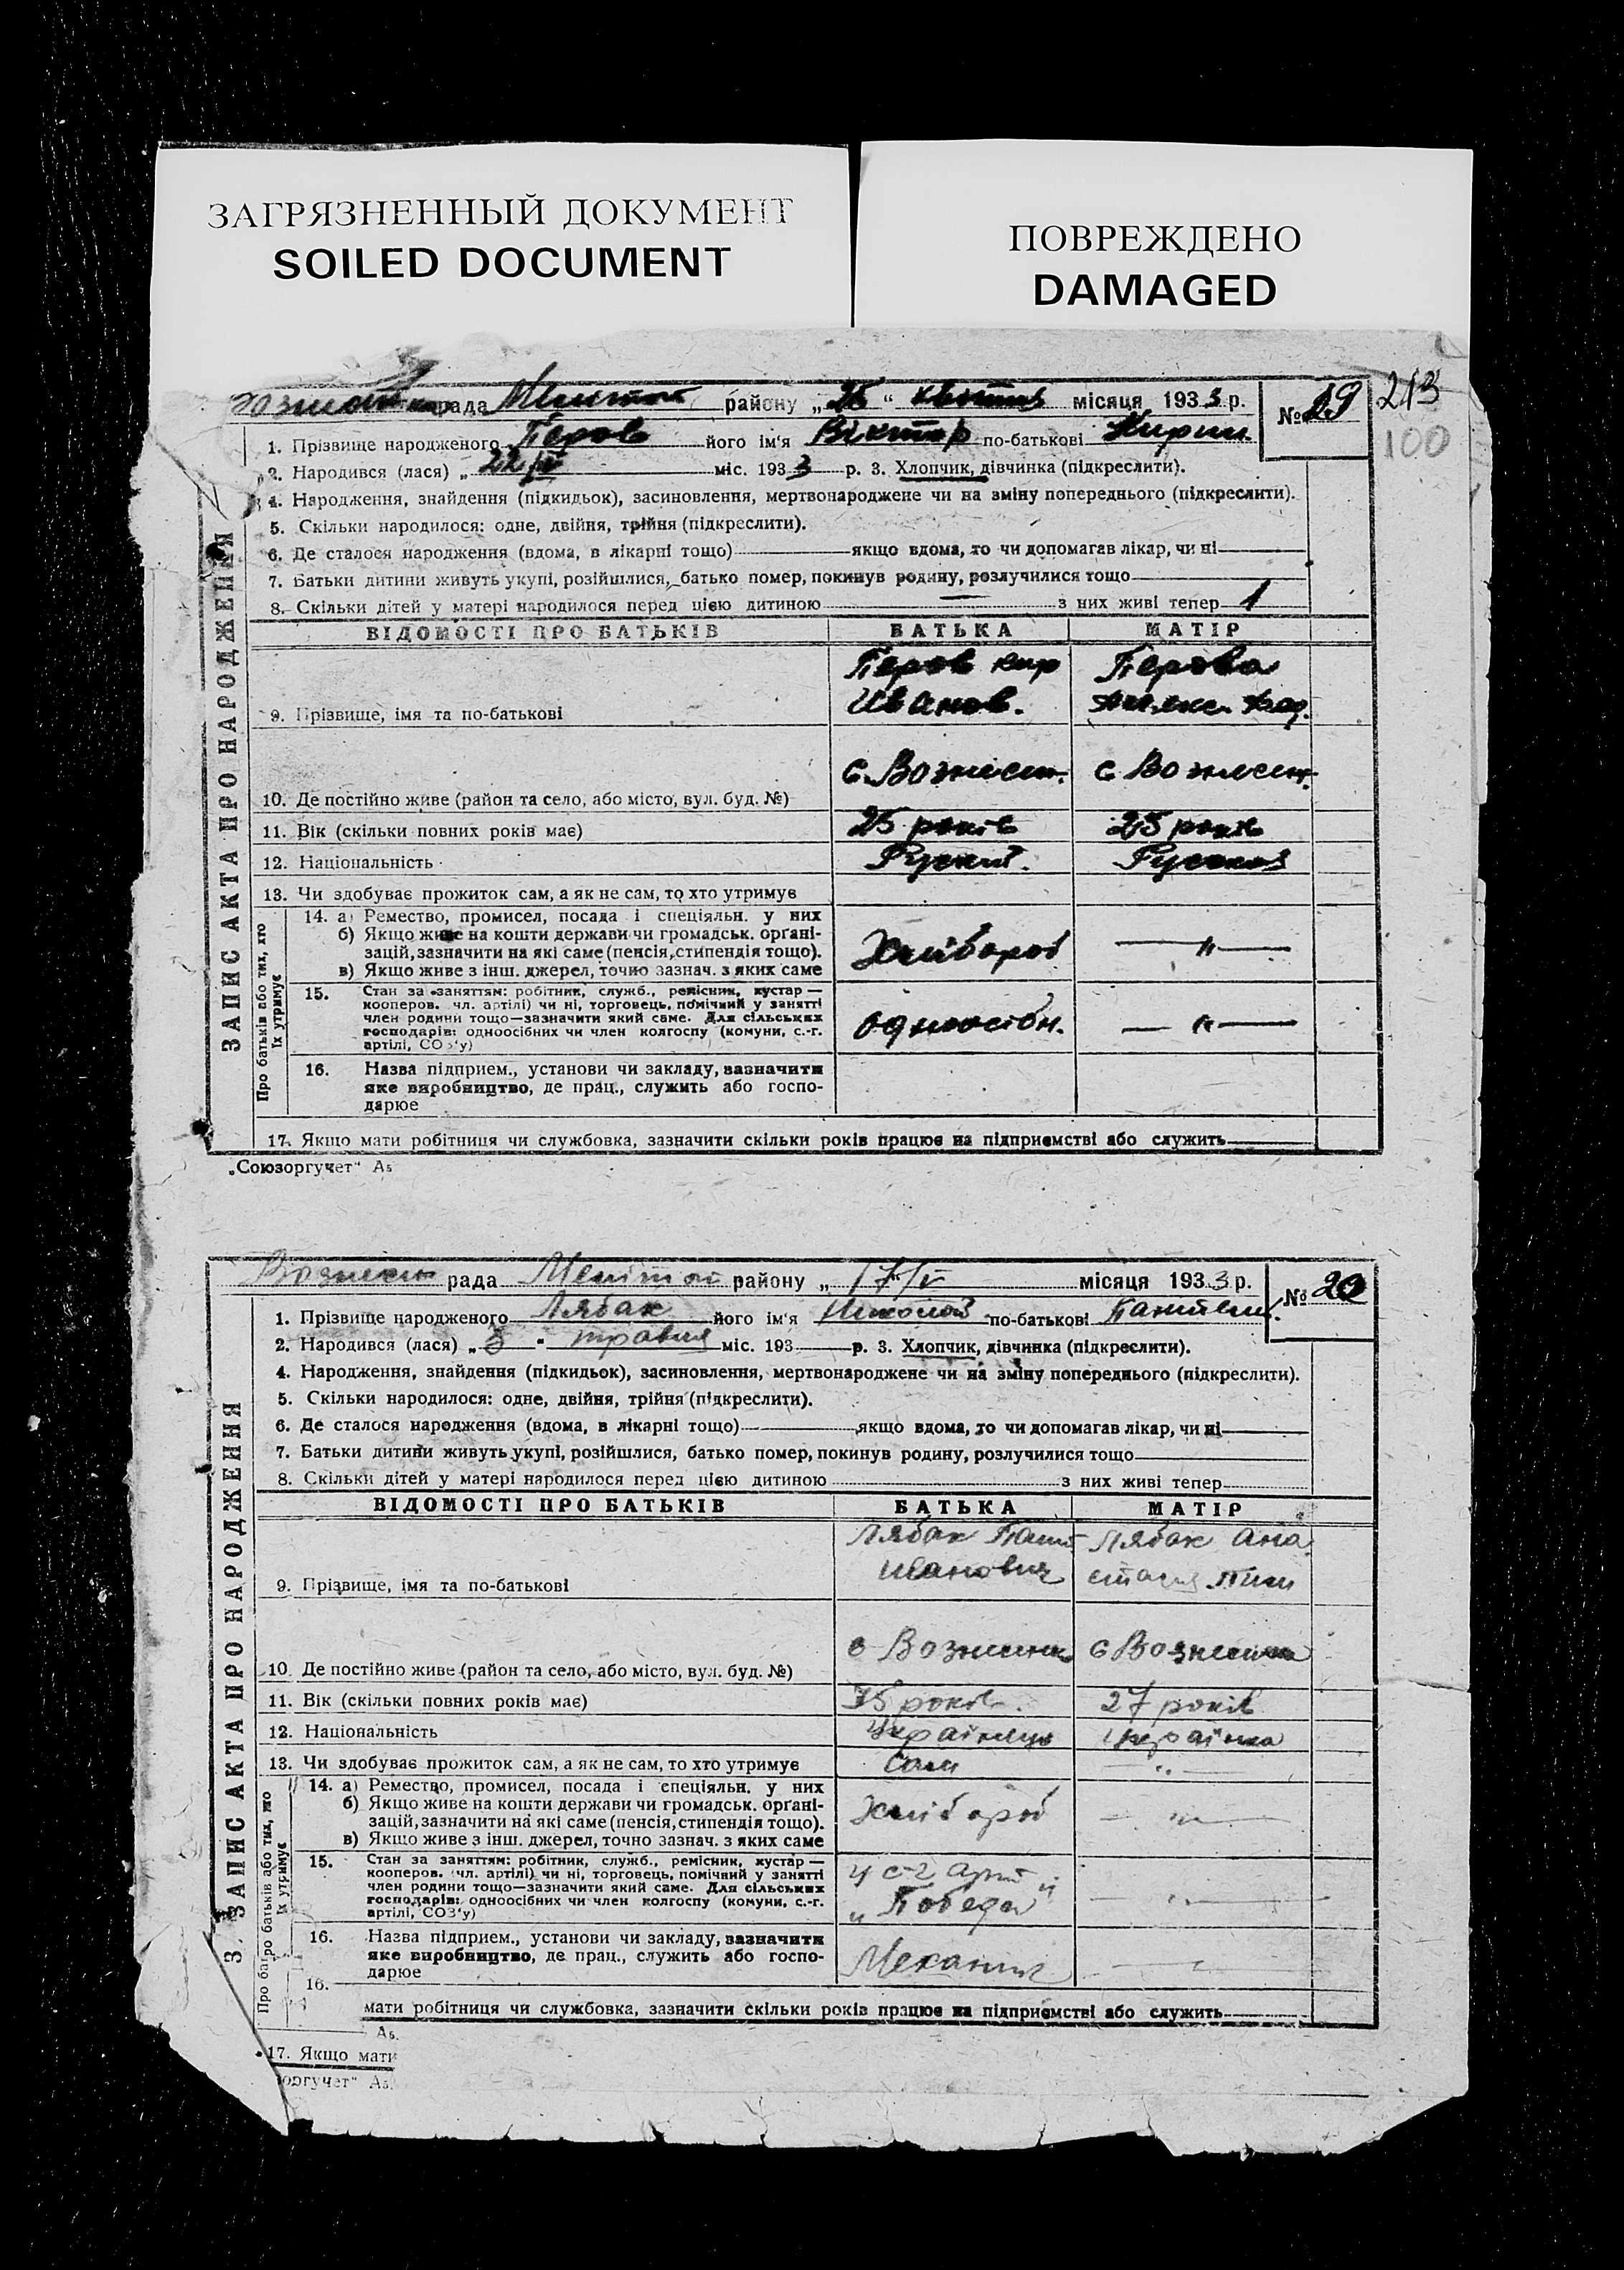 ЗАГРЯЗНЕННЫЙ ДОКУМЕНТ
SOILED DOCUMENT
ПОВРЕЖДЕНО
DAMAGED
рада Меліт району „25“ квітня місяця 1933 р. № 19 213
100
1. Прізвище народженого Перов його ім'я Віктор по-батькові Кирил.
2. Народився (лася) „22/IV міс. 1933 р. 3. Хлопчик, дівчинка (підкреслити).
4. Народження, знайдення (підкидьок), засиновлення, мертвонароджене чи на зміну попереднього (підкреслити).
5. Скільки народилося: одне, двійня, трійня (підкреслити).
6. Де сталося народження (вдома, в лікарні тощо) якщо вдома, то чи допомагав лікар, чи ні
7. Батьки дитини живуть укупі, розійшлися, батько помер, покинув родину, розлучилися тощо
8. Скільки дітей у матері народилося перед цією дитиною — з них живі тепер 1
ЗАПИС АКТА ПРО НАРОДЖЕННЯ
ВІДОМОСТІ ПРО БАТЬКІВ БАТЬКА МАТІР
Перов Кир Перова
Иванов.
9. Прізвище, імя та по-батькові
с. Вознесен. с Вознесен.
10. Де постійно живе (район та село, або місто, вул. буд. №)
11. Вік (скільки повних років має) 25 років 25 років
12. Національність Руский. Руская
13. Чи здобуває прожиток сам, а як не сам, то хто утримує
Про батьків або тих, хто їх утримує
14. а) Ремество, промисел, посада і спеціяльн. у них
б) Якщо живе на кошти держави чи громадськ. організацій, зазначити на які саме (пенсія, стипендія тощо).
в) Якщо живе з інш. джерел, точно зазнач. з яких саме
Хлібороб — " —
15. Стан за заняттям: робітник, служб., ремісник, кустар —
кооперов. чл. артілі) чи ні, торговець, помічний у занятті
член родини тощо—зазначити який саме. Для сільських
господарів: одноосібних чи член колгоспу (комуни, с.-г.
артілі, СОЗ'у)
Одноосібн. — " —
16. Назва підприєм., установи чи закладу, зазначити
яке виробництво, де прац., служить або госпо-
дарює
17. Якщо мати робітниця чи службовка, зазначити скільки років працює на підприємстві або служить
„Союзоргучет“ Аз
Вознесен рада Мелітоп району „17/V місяця 1933 р. № 20
1. Прізвище народженого Лябак його ім'я Николай по-батькові Пантел.
2. Народився (лася) „5“ травня міс. 193 р. 3. Хлопчик, дівчинка (підкреслити).
4. Народження, знайдення (підкидьок), засиновлення, мертвонароджене чи на зміну попереднього (підкреслити).
5. Скільки народилося: одне, двійня, трійня (підкреслити).
6. Де сталося народження (вдома, в лікарні тощо) якщо вдома, то чи допомагав лікар, чи ні
7. Батьки дитини живуть укупі, розійшлися, батько помер, покинув родину, розлучилися тощо
8. Скільки дітей у матері народилося перед цією дитиною з них живі тепер
З. ЗАПИС АКТА ПРО НАРОДЖЕННЯ
ВІДОМОСТІ ПРО БАТЬКІВ БАТЬКА МАТІР
Лябак Пант Лябак Ана
Іванович стасия
9. Прізвище, імя та по-батькові
с Вознесенк с Вознесенка
10. Де постійно живе (район та село, або місто, вул. буд. №)
11. Вік (скільки повних років має) 35 років. 27 років
12. Національність Українець Українка
13. Чи здобуває прожиток сам, а як не сам, то хто утримує Сам — " —
Про батьків або тих, що їх утримує
14. а) Ремество, промисел, посада і спеціяльн. у них
б) Якщо живе на кошти держави чи громадськ. організацій, зазначити на які саме (пенсія, стипендія тощо).
в) Якщо живе з інш. джерел, точно зазнач. з яких саме
Хлібороб — " —
15. Стан за заняттям: робітник, служб., ремісник, кустар —
кооперов. чл. артілі) чи ні, торговець, помічний у занятті
член родини тощо—зазначити який саме. Для сільських
господарів: одноосібних чи член колгоспу (комуни, с.-г.
артілі, СОЗ'у)
ч с-г арт
„Победа“
16. Назва підприєм., установи чи закладу, зазначити
яке виробництво, де прац., служить або госпо-
дарює
Механик
16.
мати робітниця чи службовка, зазначити скільки років працює на підприємстві або служить
Аз.
17. Якщо мати
оргучет“ Аз.